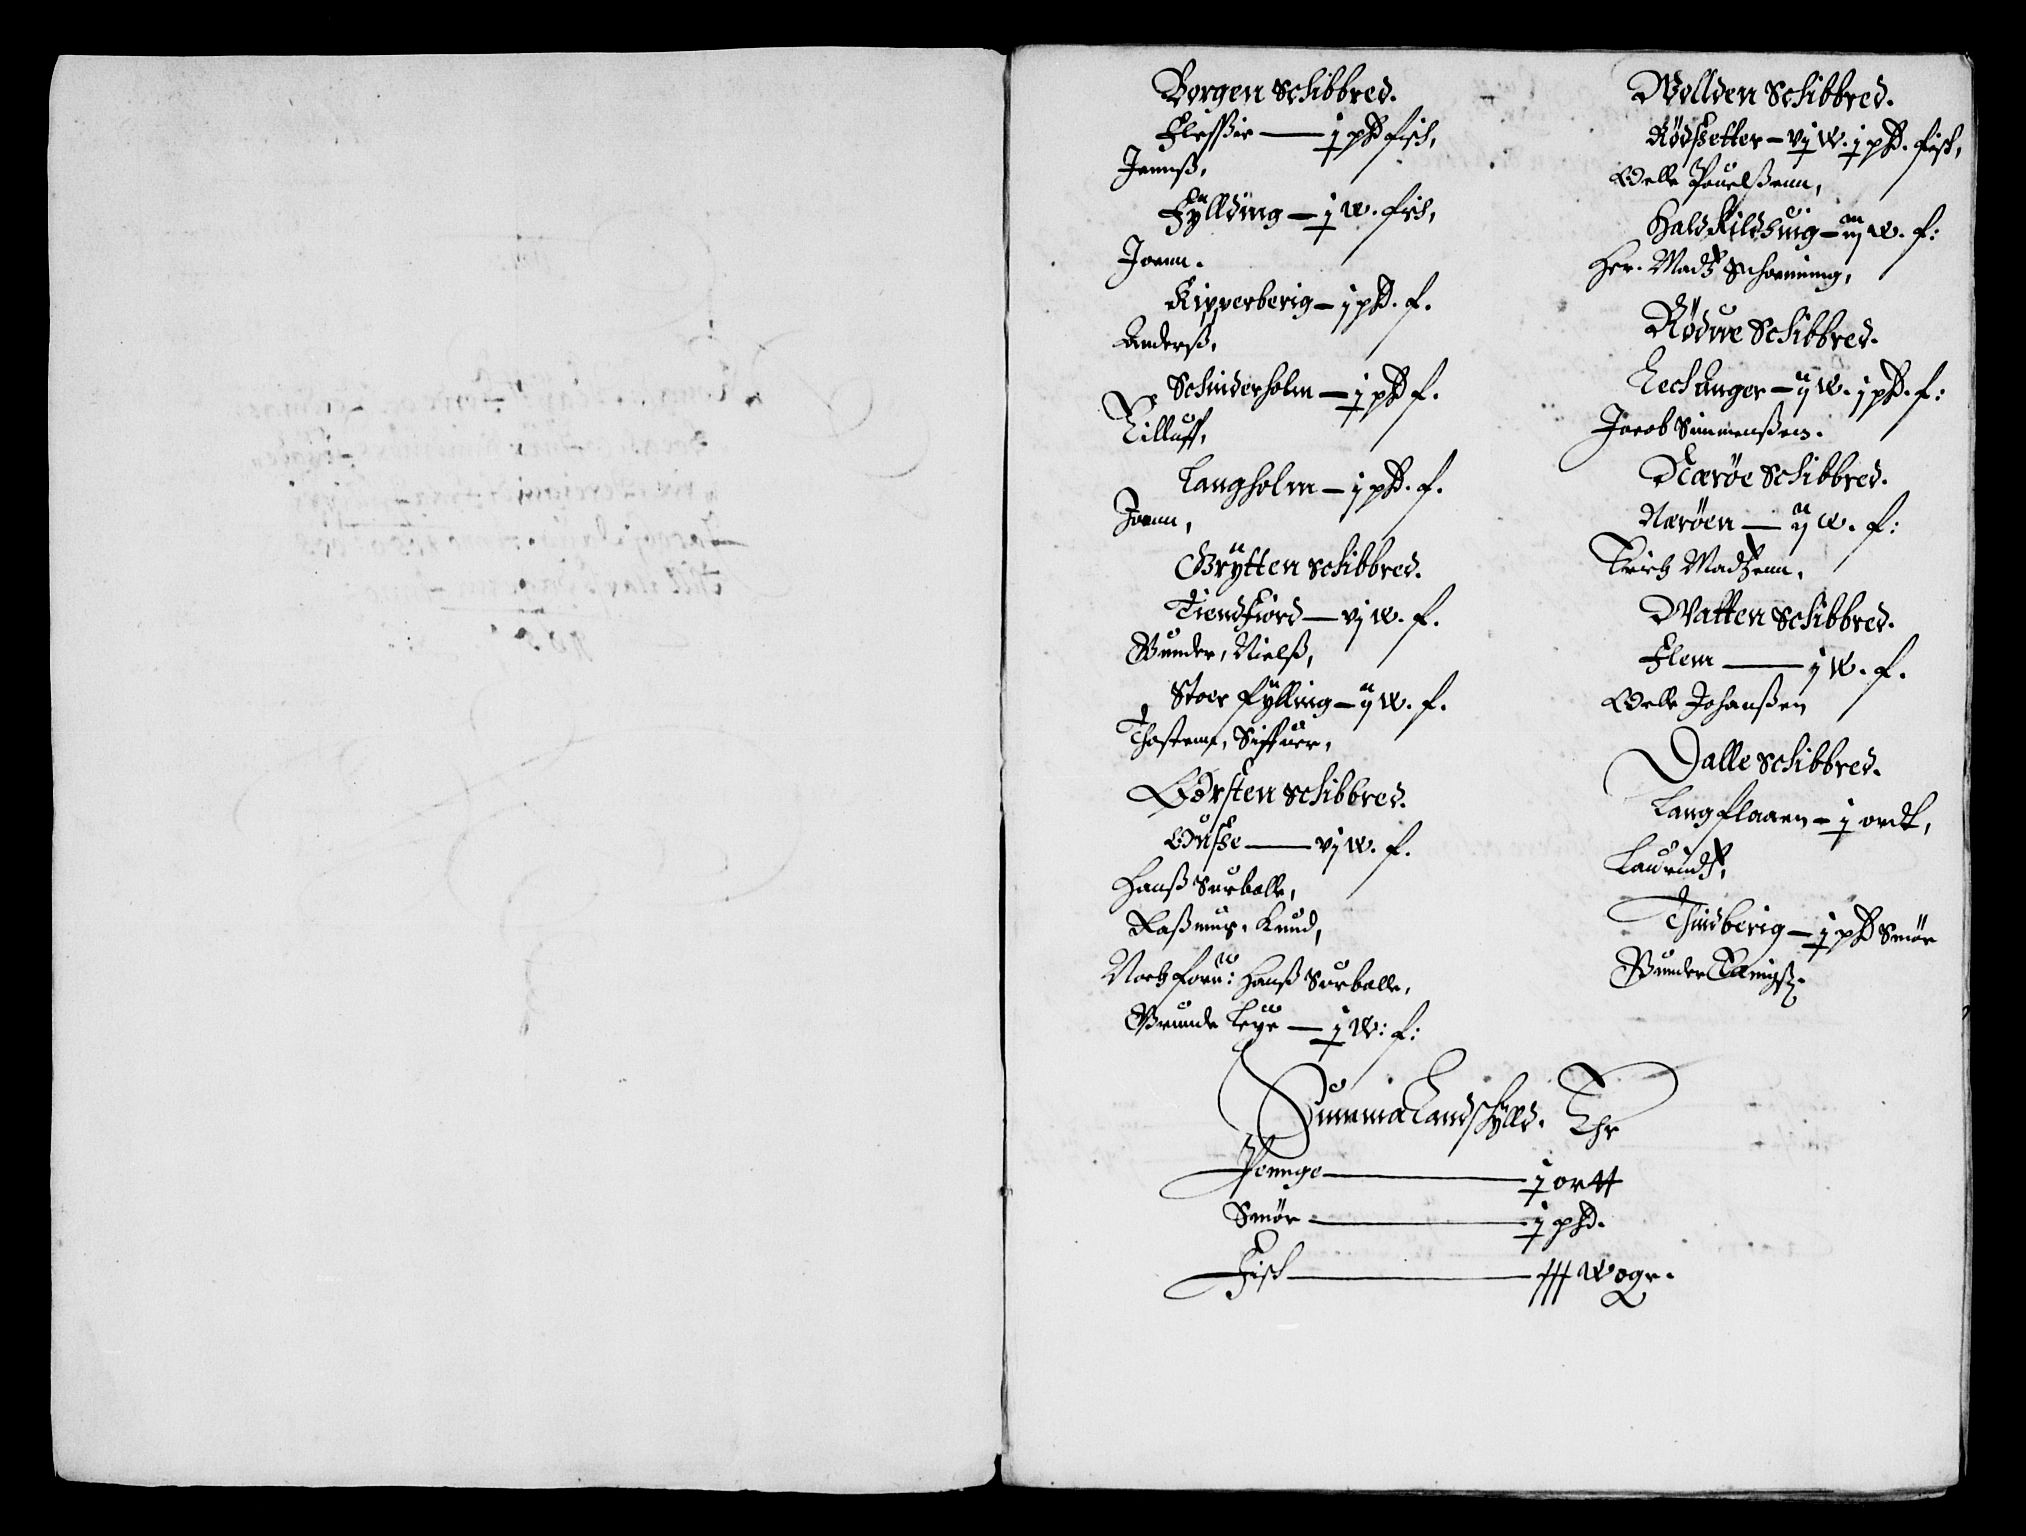 Borgen Schibbred.
Flessße — j pd fisch,
Jennß,
Fÿllding — j w. fisch,
Joenn.
Kipperberig — j pd. f.
Anderß,
Schinderholm — j pd f.
Tilluff,
Langholm — j pd. f.
Joenn,
Grÿtten schibbred.
Tiendfiord — vj w. f.
Gunder, Nielß,
Stoer fÿlling — ij w. f.
Thostenn, Siffuer,
Ørsten schibbred.
Ousße — vj w. f.
Hanß Surballe,
Raßmus, Knud,
Noch foru: Hanß Surballe,
Grunde Leÿe — j w: f:
Wollden Schibbred.
Rødsetter — vj w. j pd. fisk,
Oelle Pouelßenn,
Hald Kildsuig — iij w. f:
Her. Madtz Schoenning,
Rødue Schibbred.
Eechanger — ij w. j pd. f:
Jacob Simmenßen.
Nærøe Schibbred.
Nærøen — ij w. f:
Erich Madtzenn,
Watten Schibbred.
Flem — j w. f.
Oelle Johanßen
Dalle schibbred.
Langflaaen — j ordt,
Lauridtz,
Thindberig — j pd Smør
Gunder
Summa Landschÿlld. Ehr
Pennge — j ortt
Smør — j pd.
Fisk — Woge.